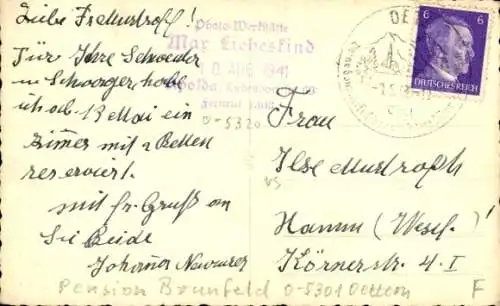 Liebe Fr.
Für Ihre Schwester
u. Schwager habe
ich ab 13 Mai ein
Zimmer mit 2 Betten
reserviert.
mit fr. Gruß an
Sie Beide
Johanna
Photo-Werkstätte
Max Liebeskind
10. AUG. 1941
Apolda
O-5320
DEUTSCHES REICH
6 6
Frau
Ilse
Hamm (Westf.)
Körnerstr. 4. I
Pension Brunfeld O-5301 Oettern F